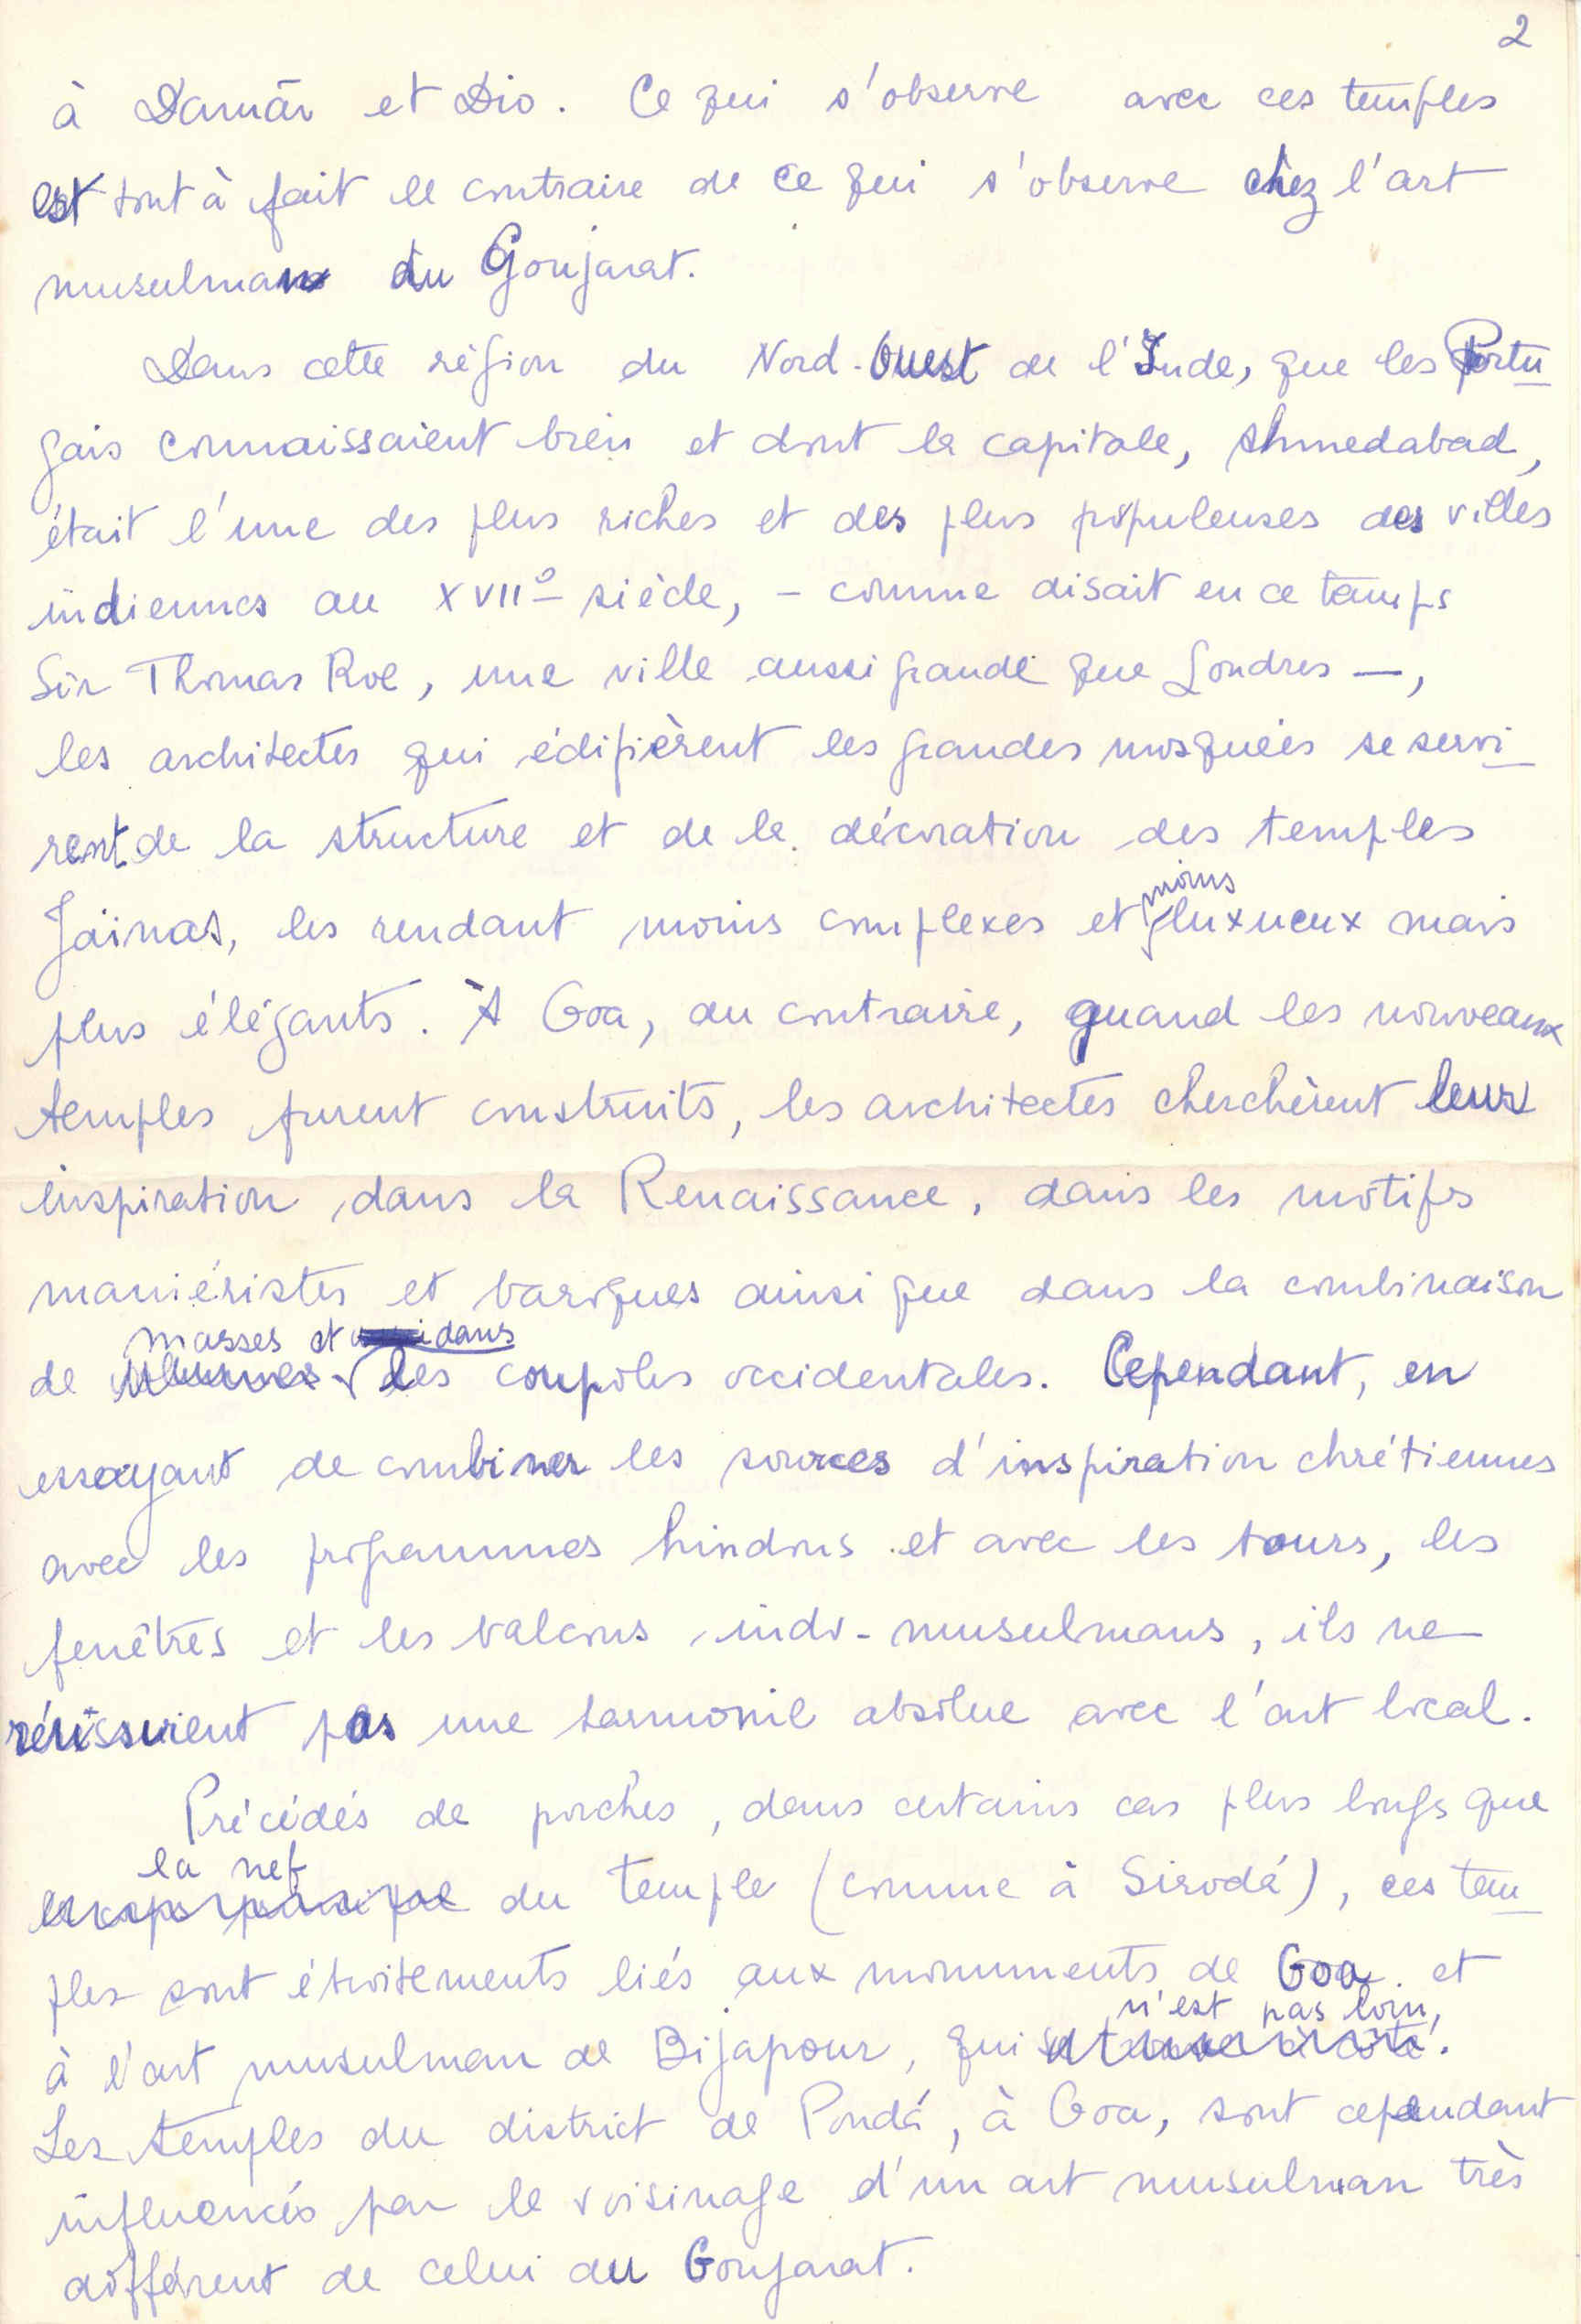 2
à Damão et Dio. Ce qui s'observe avec ces temples
est tout à fait le contraire de ce qui s'observe chez l'art
musulman du Goujarat.
Dans cette région du Nord-Ouest de l'Inde, que les Portu
gais connaissaient bien et dont la capitale, Ahmedabad,
était l'une des plus riches et des plus populeuses des villes
indiennes au XVIIº siècle, – comme disait en ce temps
Sir Thomas Roe, une ville aussi grande que Londres –,
les architectes qui édifièrent les grandes mosquées se servi
rent de la structure et de la décoration des temples
Jaïnas, les rendant moins complexes et moins luxueux mais
plus élégants. À Goa, au contraire, quand les nouveaux
temples furent construits, les architectes cherchèrent leur
inspiration dans la Renaissance, dans les motifs
maniéristes et baroques ainsi que dans la combinaison
masses et dans
de volumes les coupoles occidentales. Cependant, en
essayant de combiner les sources d'inspiration chrétiennes
avec les programmes hindous et avec les tours, les
fenêtres et les balcons indo-musulmans, ils ne
réussirent pas une harmonie absolue avec l'art local.
Précédés de porches, dans certains cas plus longs que
la nef
le corps principal du temple (comme à Sirodá), ces tem
ples sont étroitements liés aux monuments de Goa et
n'est pas loin,
à l'art musulman de Bijapour, qui se trouve à côté.
Les temples du district de Pondá, à Goa, sont cependant
influencés par le voisinage d'un art musulman très
différent de celui du Goujarat.